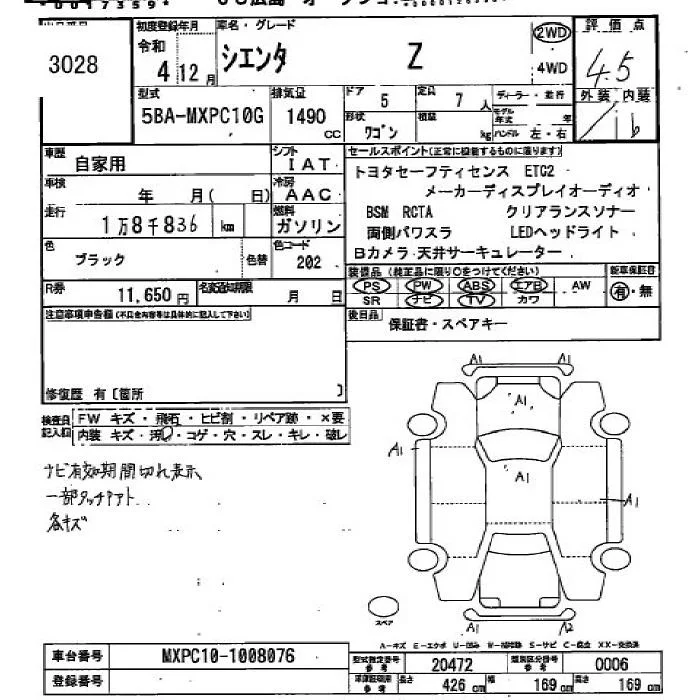 3028
初度登録年月
令和
4 12月
車名・グレード
シエンタ Z
2WD
4WD
評価点
4.5
外装 内装
/ b
型式
5BA-MXPC10G
排気量
1490
CC
ドア
5
定員
7人
ディーラー・並行
モデル年式 年
形状
ワゴン
積載
kg
ハンドル 左・右
車歴
自家用
シフト
IAT
車検
年 月( 日)
冷房
AAC
走行
1万8千836 km
燃料
ガソリン
色
ブラック
色替
色コード
202
R券
11,650円
名変通知期限
月 日
セールスポイント(正常に機能するものに限ります)
トヨタセーフティセンス ETC2
メーカーディスプレイオーディオ
BSM RCTA クリアランスソナー
両側パワスラ LEDヘッドライト
Bカメラ 天井サーキュレーター
装備品(純正品に限り○をつけてください)
PS PW ABS エアB AW
SR ナビ TV カワ
新車保証書
有・無
後日品
保証書・スペアキー
注意事項申告欄(不具合内容等は具体的に記入して下さい)
修復歴 有〔箇所 〕
検査員記入欄
FW キズ・飛石・ヒビ割・リペア跡・×要
内装 キズ・汚・コゲ・穴・スレ・キレ・破レ
ナビ有効期間切れ表示
一部タッチアト
各キズ
A1 A1
A1
A1
A1
A1
A1 A2
スペア
車台番号
MXPC10-1008076
登録番号
型式指定番号
参考
20472
類別区分番号
参考
0006
車体寸法
参考
長さ 426 cm
幅 169 cm
高さ 169 cm